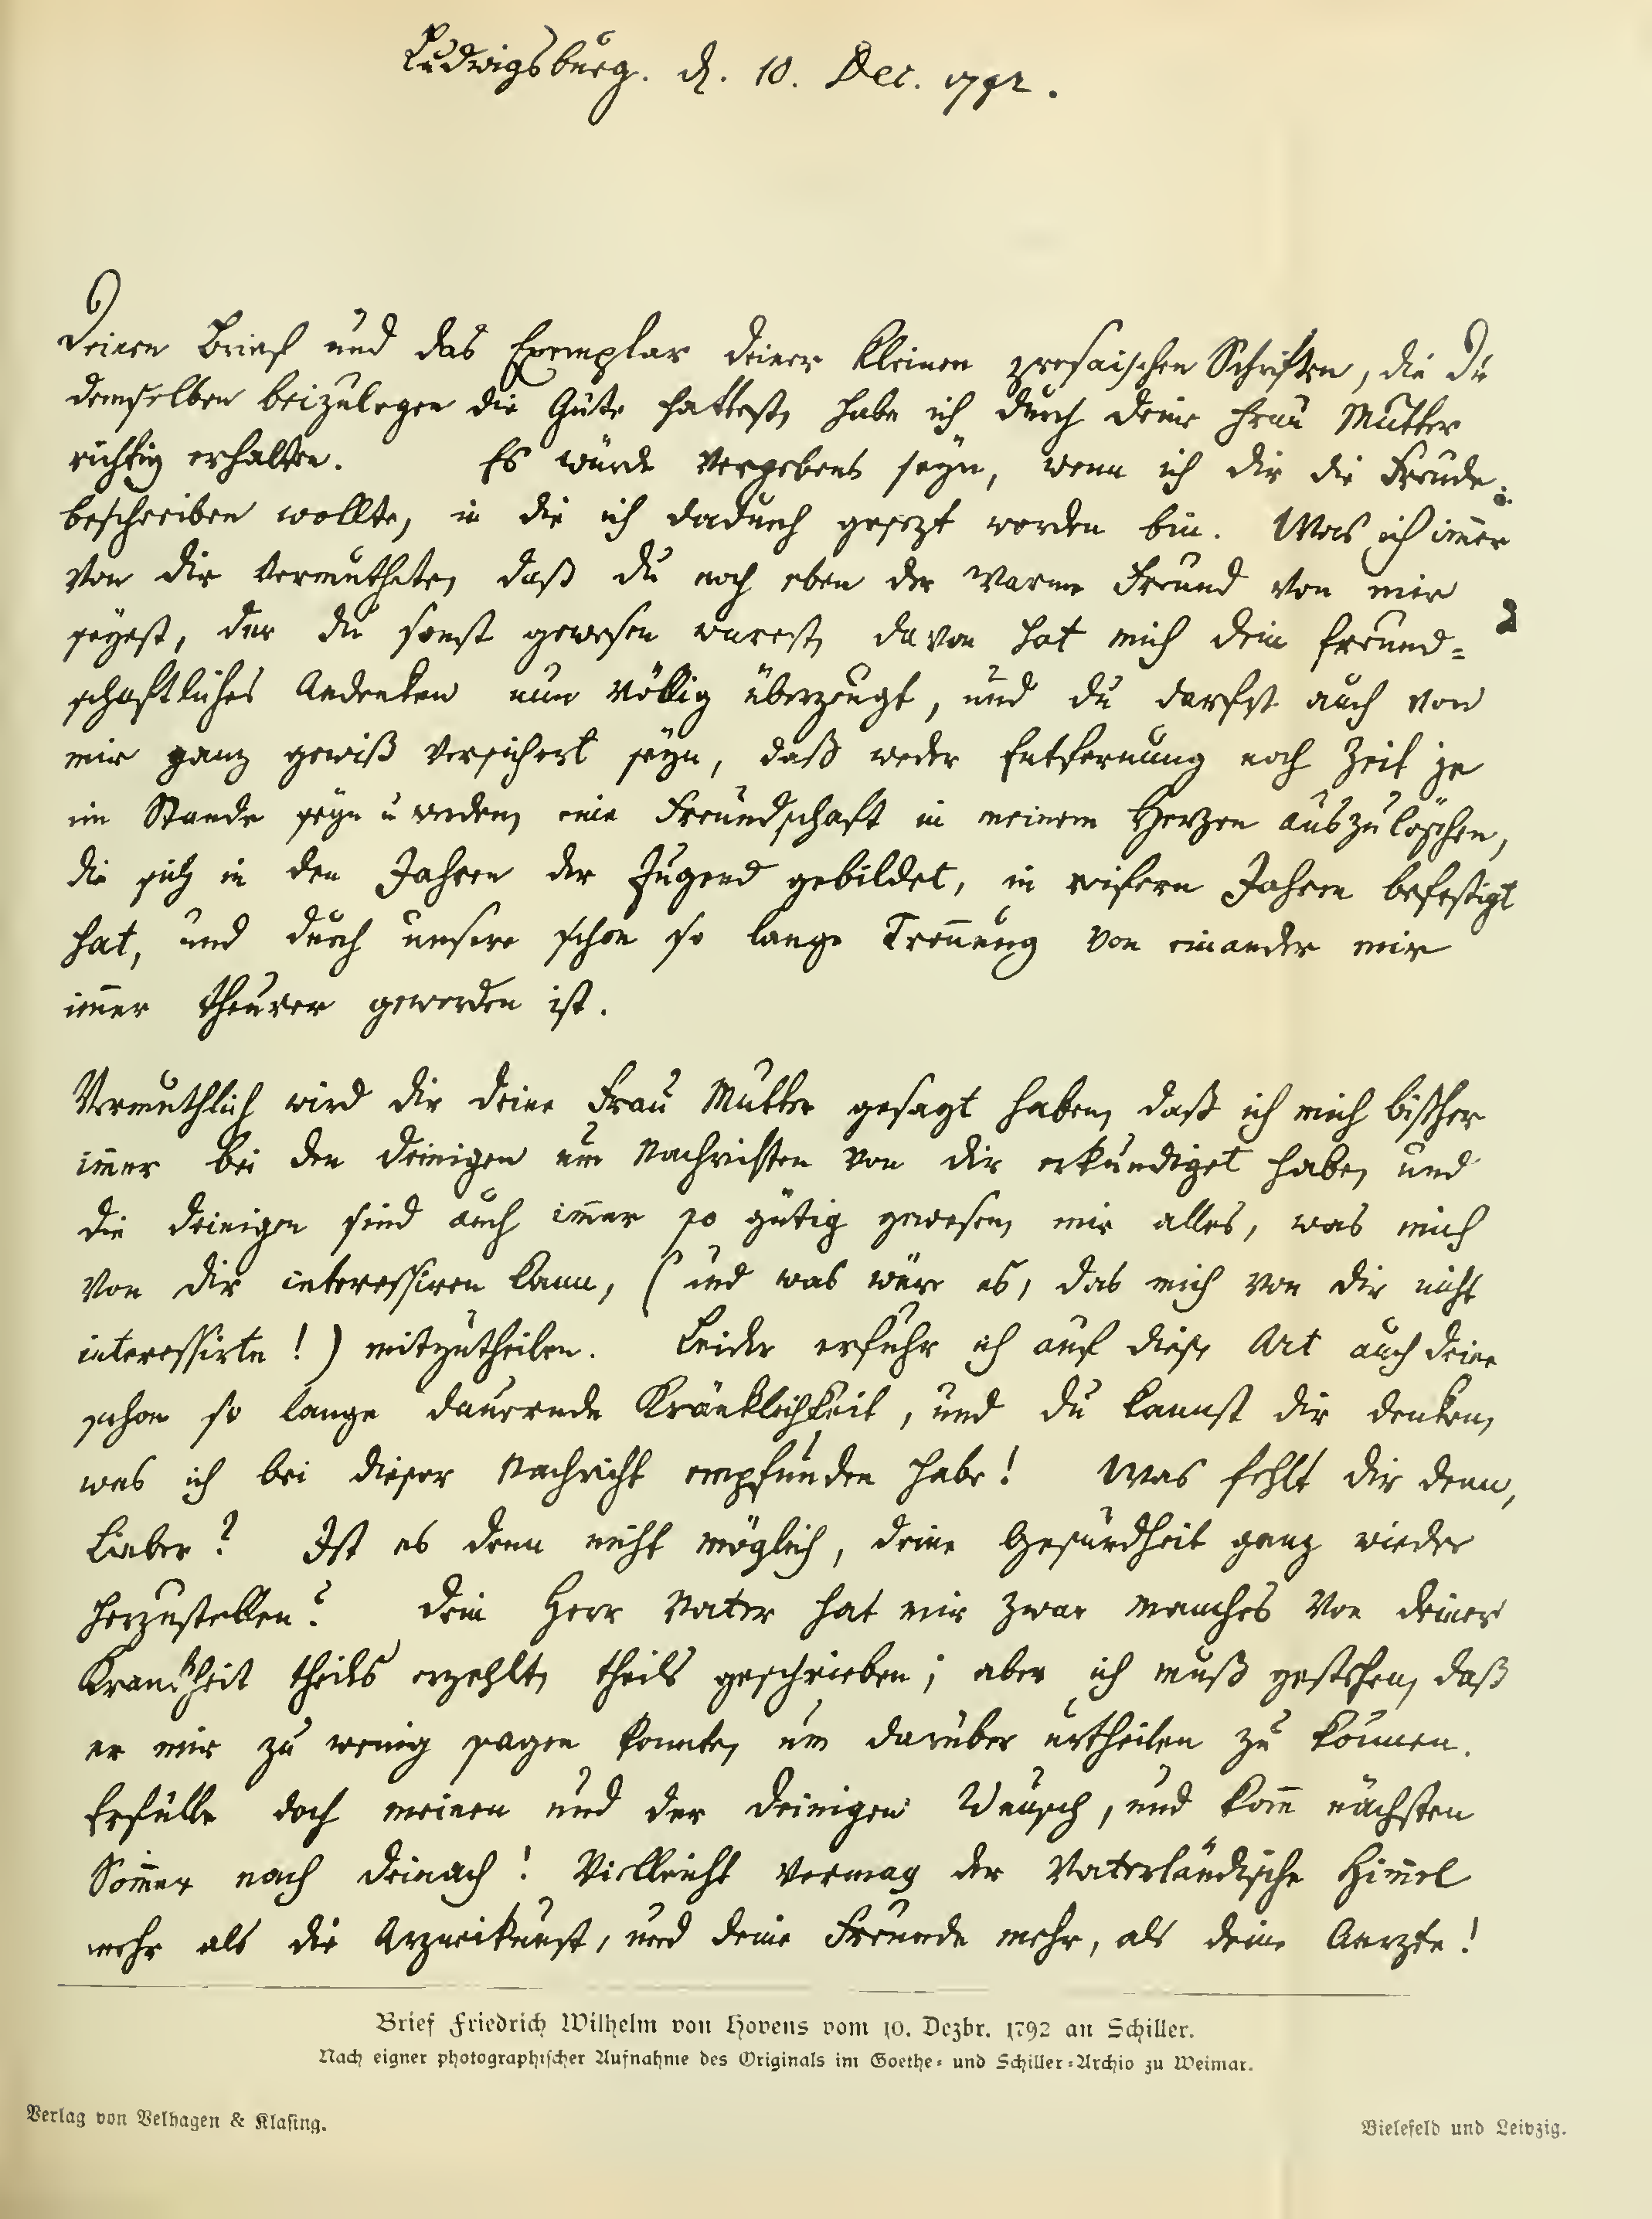 Ludwigsburg. d. 10. Dec. 1792.
Deinen Brief und das Exemplar deiner kleinen prosaischen Schriften, die Du
demselben beizulegen die Güte hattest, habe ich durch deine Frau Mutter
richtig erhalten. Es würde vergebens seyn, wenn ich dir die Freude
beschreiben wollte, in die ich dadurch gesezt worden bin. Was ich im̄er
von dir vermuthete, daß du noch eben der warme Freund von mir
seyest, der du sonst gewesen warest, davon hat mich dein freund=
schaftliches Andenken nun völlig überzeugt, und du darfst auch von
mir ganz gewiß versichert seyn, daß weder Entfernung noch Zeit je
im Stande seyn werden, eine Freundschaft in meinem Herzen auszulöschen,
die sich in den Jahren der Jugend gebildet, in reifern Jahren befestigt
hat, und durch unsere schon so lange Tren̄ung von einander mir
im̄er theurer geworden ist.
Vermuthlich wird dir deine Frau Mutter gesagt haben, daß ich mich bißher
im̄er bei den deinigen um Nachrichten von dir erkundiget habe, und
die deinigen sind auch im̄er so gütig gewesen, mir alles, was mich
von dir interessiren kann, (und was wäre es, das mich von dir nicht
interessirte!) mitzutheilen. Leider erfuhr ich auf diese Art auch deine
schon so lange daurende Kränklichkeit, und du kannst dir denken,
was ich bei dieser Nachricht empfunden habe! Was fehlt dir denn,
Lieber? Ist es denn nicht möglich, deine Gesundheit ganz wieder
herzustellen? Dein Herr Vater hat mir zwar manches von deiner
Krankheit theils erzehlt, theils geschrieben; aber ich muß gestehen, daß
er mir zu wenig sagen konnte, um darüber urtheilen zu können.
Erfülle doch meinen und der deinigen Wunsch, und kom̄ nächsten
Som̄er nach Deinach! Vielleicht vermag der Vaterländische Him̄el
mehr als die Arzneikunst, und deine Freunde mehr, als deine Aerzte!
Brief Friedrich Wilhelm von Hovens vom 10. Dezbr. 1792 an Schiller.
Nach eigner photographischer Aufnahme des Originals im Goethe= und Schiller=Archiv zu Weimar.
Verlag von Velhagen & Klasing.
Bielefeld und Leipzig.